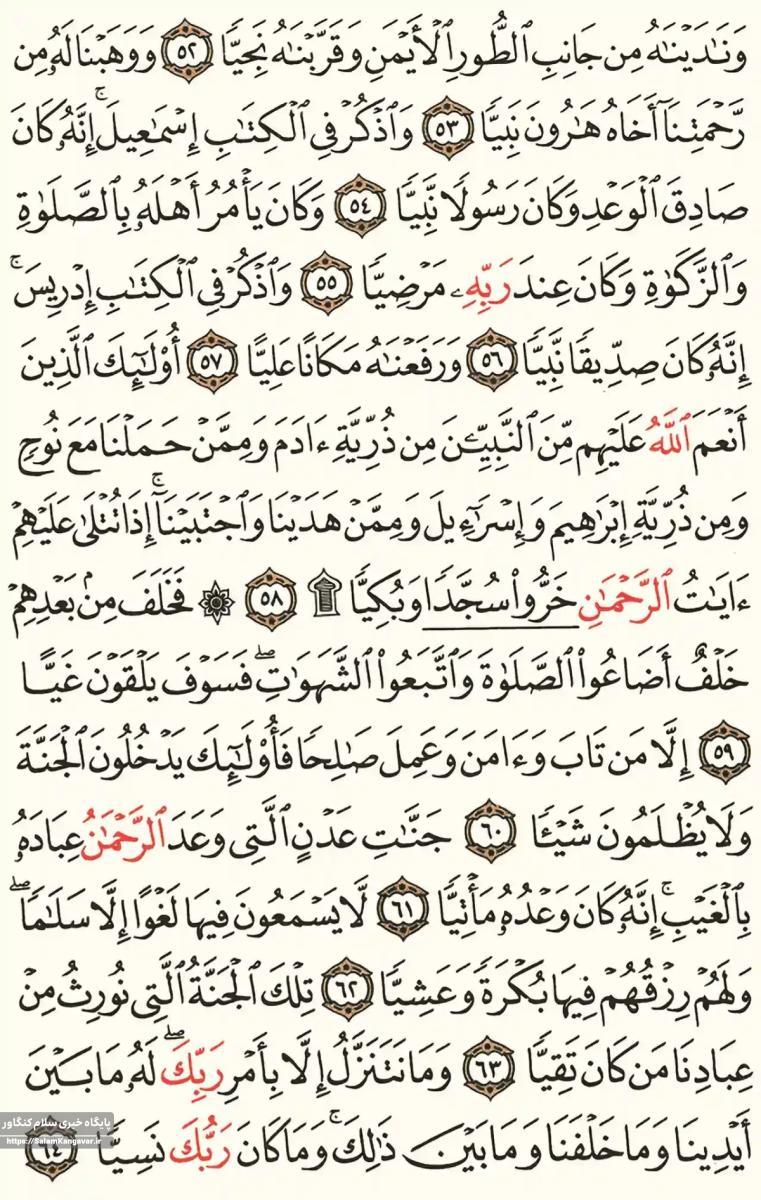 وَنَٰدَيْنَٰهُ مِن جَانِبِ ٱلطُّورِ ٱلْأَيْمَنِ وَقَرَّبْنَٰهُ نَجِيًّا ٥٢ وَوَهَبْنَا لَهُۥ مِن
رَّحْمَتِنَآ أَخَاهُ هَٰرُونَ نَبِيًّا ٥٣ وَٱذْكُرْ فِى ٱلْكِتَٰبِ إِسْمَٰعِيلَ ۚ إِنَّهُۥ كَانَ
صَادِقَ ٱلْوَعْدِ وَكَانَ رَسُولًا نَّبِيًّا ٥٤ وَكَانَ يَأْمُرُ أَهْلَهُۥ بِٱلصَّلَوٰةِ
وَٱلزَّكَوٰةِ وَكَانَ عِندَ رَبِّهِۦ مَرْضِيًّا ٥٥ وَٱذْكُرْ فِى ٱلْكِتَٰبِ إِدْرِيسَ ۚ
إِنَّهُۥ كَانَ صِدِّيقًا نَّبِيًّا ٥٦ وَرَفَعْنَٰهُ مَكَانًا عَلِيًّا ٥٧ أُو۟لَٰٓئِكَ ٱلَّذِينَ
أَنْعَمَ ٱللَّهُ عَلَيْهِم مِّنَ ٱلنَّبِيِّۦنَ مِن ذُرِّيَّةِ ءَادَمَ وَمِمَّنْ حَمَلْنَا مَعَ نُوحٍ
وَمِن ذُرِّيَّةِ إِبْرَٰهِيمَ وَإِسْرَٰٓءِيلَ وَمِمَّنْ هَدَيْنَا وَٱجْتَبَيْنَآ ۚ إِذَا تُتْلَىٰ عَلَيْهِمْ
ءَايَٰتُ ٱلرَّحْمَٰنِ خَرُّوا۟ سُجَّدًا وَبُكِيًّا ۩ ٥٨ ۞ فَخَلَفَ مِنۢ بَعْدِهِمْ
خَلْفٌ أَضَاعُوا۟ ٱلصَّلَوٰةَ وَٱتَّبَعُوا۟ ٱلشَّهَوَٰتِ ۖ فَسَوْفَ يَلْقَوْنَ غَيًّا
٥٩ إِلَّا مَن تَابَ وَءَامَنَ وَعَمِلَ صَٰلِحًا فَأُو۟لَٰٓئِكَ يَدْخُلُونَ ٱلْجَنَّةَ
وَلَا يُظْلَمُونَ شَيْـًٔا ٦٠ جَنَّٰتِ عَدْنٍ ٱلَّتِى وَعَدَ ٱلرَّحْمَٰنُ عِبَادَهُۥ
بِٱلْغَيْبِ ۚ إِنَّهُۥ كَانَ وَعْدُهُۥ مَأْتِيًّا ٦١ لَّا يَسْمَعُونَ فِيهَا لَغْوًا إِلَّا سَلَٰمًا ۖ
وَلَهُمْ رِزْقُهُمْ فِيهَا بُكْرَةً وَعَشِيًّا ٦٢ تِلْكَ ٱلْجَنَّةُ ٱلَّتِى نُورِثُ مِنْ
عِبَادِنَا مَن كَانَ تَقِيًّا ٦٣ وَمَا نَتَنَزَّلُ إِلَّا بِأَمْرِ رَبِّكَ ۖ لَهُۥ مَا بَيْنَ
أَيْدِينَا وَمَا خَلْفَنَا وَمَا بَيْنَ ذَٰلِكَ ۚ وَمَا كَانَ رَبُّكَ نَسِيًّا ٦٤
پایگاه خبری سلام کنگاور
https://SalamKangavar.ir